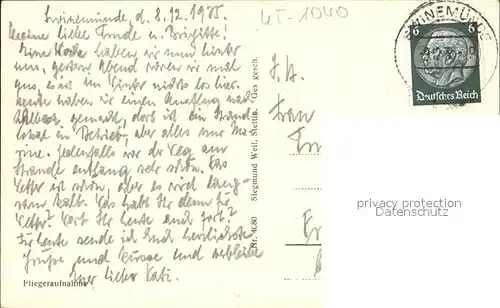 Swinemünde, d. 8.12.1935.
Meine liebe Trude u. Brigitte!
Eine Woche haben wir nun hinter
uns, gestern Abend waren wir mal
aus, es ist im Winter nichts los hier.
heute haben wir einen Ausflug nach
Ahlbeck gemacht, dort ist ein Strand-
lokal in Betrieb, aber alles nur Ma-
rine. Jedenfalls war der Weg am
Strande entlang sehr schön. Das
Wetter ist schön, aber es wird lang-
sam kalt. Was habt Ihr denn für
Wetter? Wart Ihr heute auch fort?
Für heute sende ich Euch herzlichste
Grüße und Küsse und verbleibe
Euer lieber Vati.
Fliegeraufnahme
4T-1040
Nr. 4.80 Siegmund Weil, Stettin. Ges. gesch.
Frau
SWINEMÜNDE
6 6
Deutsches Reich
privacy protection
Datenschutz